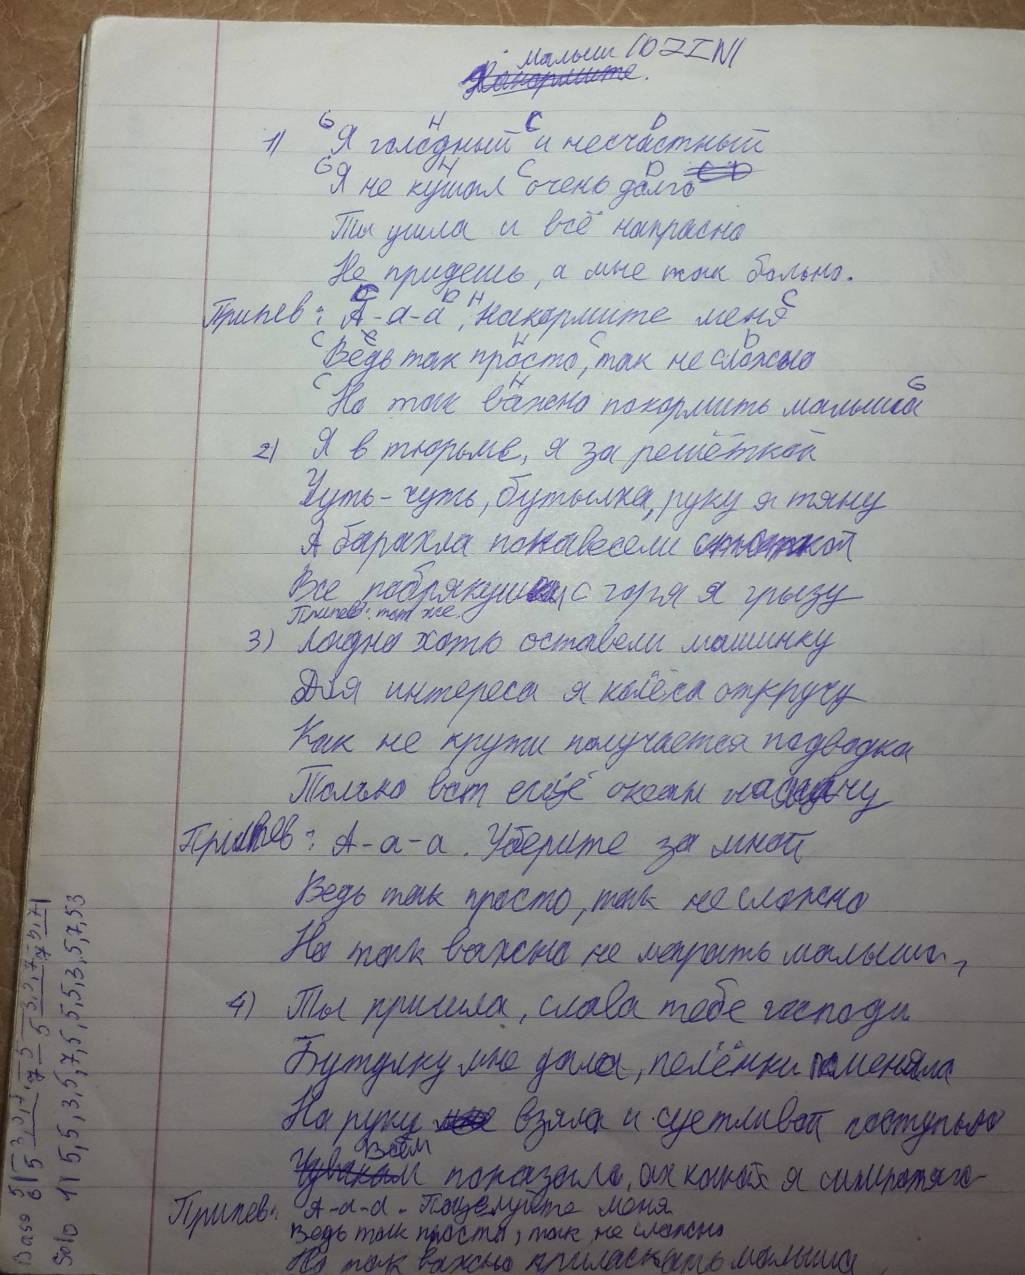 малыш
Накормите.
G H C D
1) Я голодный и несчастный
G H C D
Я не кушал очень долго
Ты ушла и всё напрасно
Не придешь, а мне так больно.
C D H C
Припев: А-а-а, накормите меня
C H C D
Ведь так просто, так не сложно
C H G
Но так важно покормить малыша
2) Я в тюрьме, я за решёткой
Чуть-чуть, бутылка, руку я тяну
А барахла понавесели
Все побрякушки с горя я грызу
Припев: тот же.
3) Ладно хоть оставели машинку
Для интереса я колёса откручу
Как не крути получается подводка
Только вот ещё океан
Припев: А-а-а. Уберите за мной
Ведь так просто, так не сложно
Но так важно не марать малыша,
4) Ты пришла, слава тебе господи
Бутулку мне дала, пелёнки поменяла
На руки взяла и суетливой поступью
Всем
показала, ах какой я симпотяга
Припев: А-а-а. Поцелуйте меня
Ведь так просто, так не сложно
Но так важно приласкать малыша
Bass
Solo 1) 5, 5, 3, 5, 7, 5, 5, 5, 3, 5, 7, 53